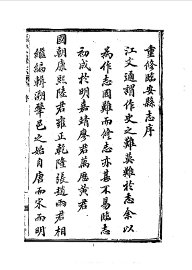 重修臨安縣志序
江文通謂作史之難莫難於志余以
為作志固難而修志亦甚不易臨志
初成於明嘉靖廖君萬厯黃君
國朝康熙陸君雍正乾隆張趙兩君相
繼編輯溯肇邑之始自唐而宋而明